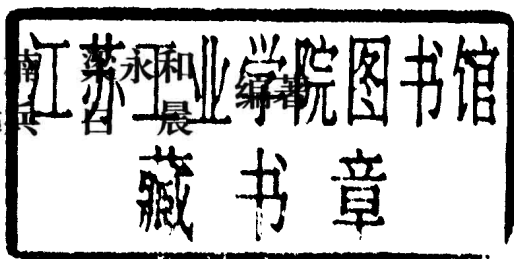 江苏工业学院图书馆
藏书章
永和
晨
编著